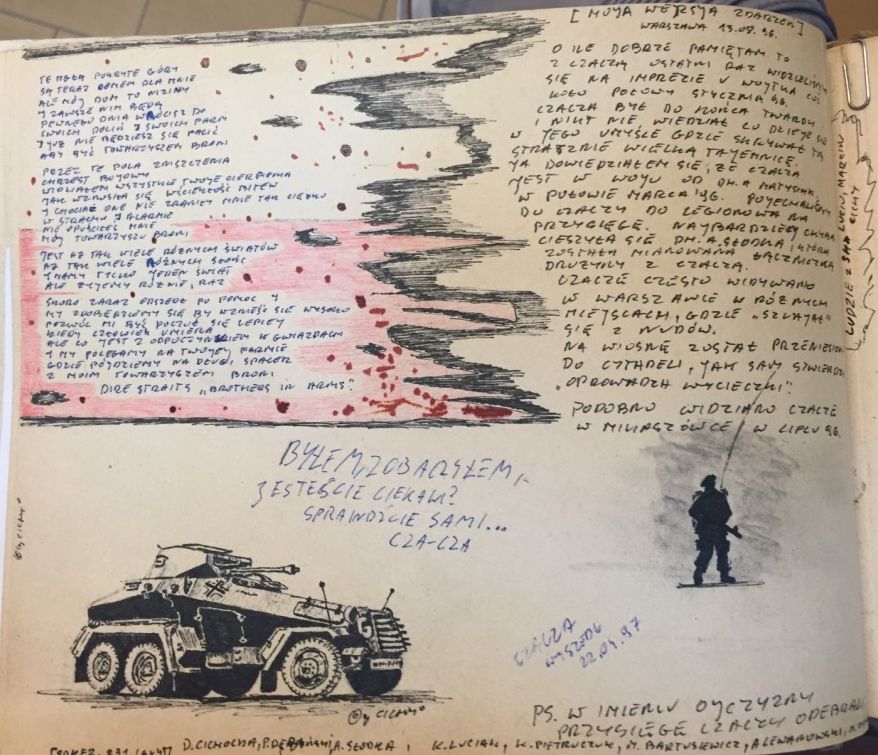 TE MGŁĄ POKRYTE GÓRY
SĄ TERAZ DOMEM DLA MNIE
ALE MÓJ DOM TO NIZINY
I ZAWSZE NIM BĘDĄ
PEWNEGO DNIA WRÓCISZ DO
SWOICH DOLIN I SWOICH FARM
I JUŻ NIE BĘDZIESZ SIĘ PALIĆ
ABY BYĆ TOWARZYSZEM BRONI
PRZEZ TE POLA ZNISZCZENIA
CHRZEST BOJOWY
WIDZIAŁEM WSZYSTKIE TWOJE CIERPIENIA
JAK WZNOSIŁA SIĘ WŚCIEKŁOŚĆ BITEW
I CHOCIAŻ ONE NIE ZRANIŁY MNIE TAK CIĘŻKO
W STRACHU I ALARMIE
NIE OPUŚCIŁEŚ MNIE
MÓJ TOWARZYSZU BRONI
JEST AŻ TAK WIELE RÓŻNYCH ŚWIATÓW
AŻ TAK WIELE RÓŻNYCH SŁOŃC
I MAMY TYLKO JEDEN ŚWIAT
ALE ŻYJEMY RÓŻNIE, RAZ
SŁOŃCE ZARAZ ODSZEDŁ PO POMOC I
MY
POZWÓL MI BYĆ POCZUĆ SIĘ LEPIEJ
KIEDY CZŁOWIEK UMIERA
ALE CO JEST Z ODPOCZYNKIEM W GWIAZDACH
I MY POLEGAMY NA TWOJEJ FARMIE
GDZIE PÓJDZIEMY NA DŁUGI SPACER
Z MOIM TOWARZYSZEM BRONI
DIRE STRAITS „BROTHERS IN ARMS"
[MOJA WERSJA ZDARZEŃ]
WARSZAWA 13.09.96.
O ILE DOBRZE PAMIĘTAM TO
Z CZACZĄ OSTATNI RAZ WIDZIELIŚMY
SIĘ NA IMPREZIE U WOJTKA
KOŁO POŁOWY STYCZNIA 96.
CZACZA BYŁ DO KOŃCA TWARDY
I NIKT NIE WIEDZIAŁ CO DZIEJE SIĘ
W JEGO UMYŚLE GDZIE SKRYWAŁ TĄ
STRASZNIE WIELKĄ TAJEMNICĘ.
JA DOWIEDZIAŁEM SIĘ, ŻE CZACZA
JEST W WOJU OD DH. A MATYSIAK,
W POŁOWIE MARCA '96. POJECHALIŚMY
DO CZACZY DO LEGIONOWA NA
PRZYSIĘGĘ. NAJBARDZIEJ CHYBA
CIESZYŁA SIĘ DH. A. SŁODKA, KTÓRA
ZOSTAŁA MIANOWANA ŁĄCZNICZKĄ
DRUŻYNY Z CZACZĄ.
CZACZĘ CZĘSTO WIDYWANO
W WARSZAWCE W RÓŻNYCH
MIEJSCACH, GDZIE „SZLAJAŁ"
SIĘ Z NUDÓW.
NA WIOSNĘ ZOSTAŁ PRZENIESION
DO CYTADELI, JAK SAM STWIERDZ
„OPROWADZA WYCIECZKI".
PODOBNO WIDZIANO CZACZĘ
W MIKASZÓWCE W LIPCU 96.
LUDZIE Z MARCIN
CICHY
BYŁEM, ZOBACZYŁEM,
JESTEŚCIE CIEKAWI?
SPRAWDŹCIE SAMI...
CZA-CZA
© by CICHY
CZACZA
WYSZEDŁ
22.04.97
© by CICHY
PS. W IMIENIU OJCZYZNY
PRZYSIĘGĘ CZACZY ODEBRAL
D. CICHOCKA, P. DĘBAŃSKI, A. SŁODKA, K. LUCIAK, K. PIETRUCZUK, M. BARTUSZEWICZ, A. LEWANDOWSKI,